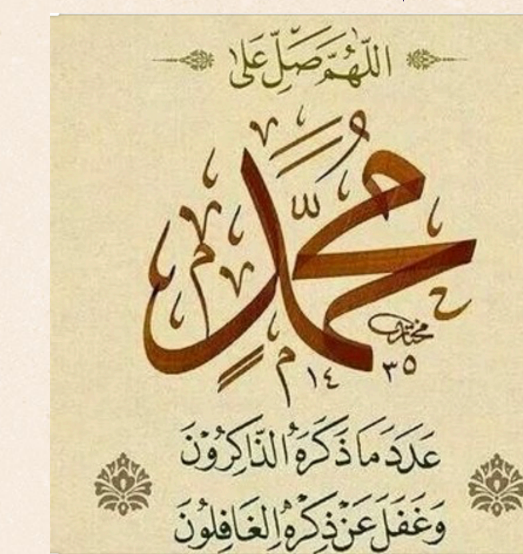 اللَّهُمَّ صَلِّ عَلَى
مُحَمَّدٍ
مختار
١٤٣٥
عَدَدَ مَا ذَكَرَهُ الذَّاكِرُوْنَ
وَغَفَلَ عَنْ ذِكْرِهِ الغَافِلُوْنَ